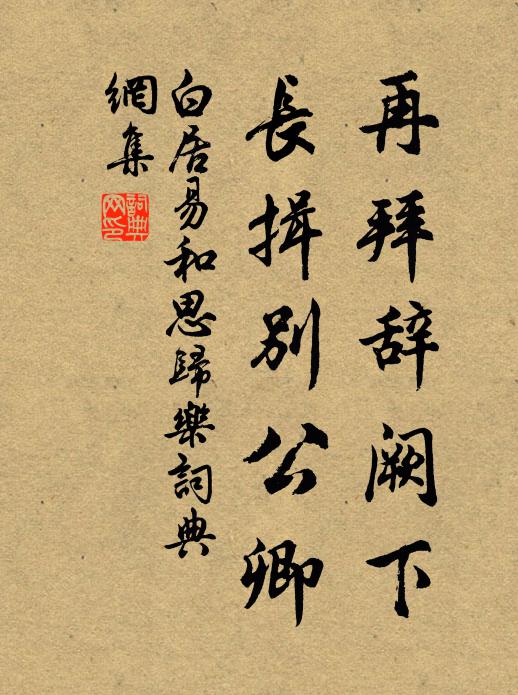 再拜辞阙下
長揖别公卿
白居易和思歸樂詞典
網集
詞典
网印